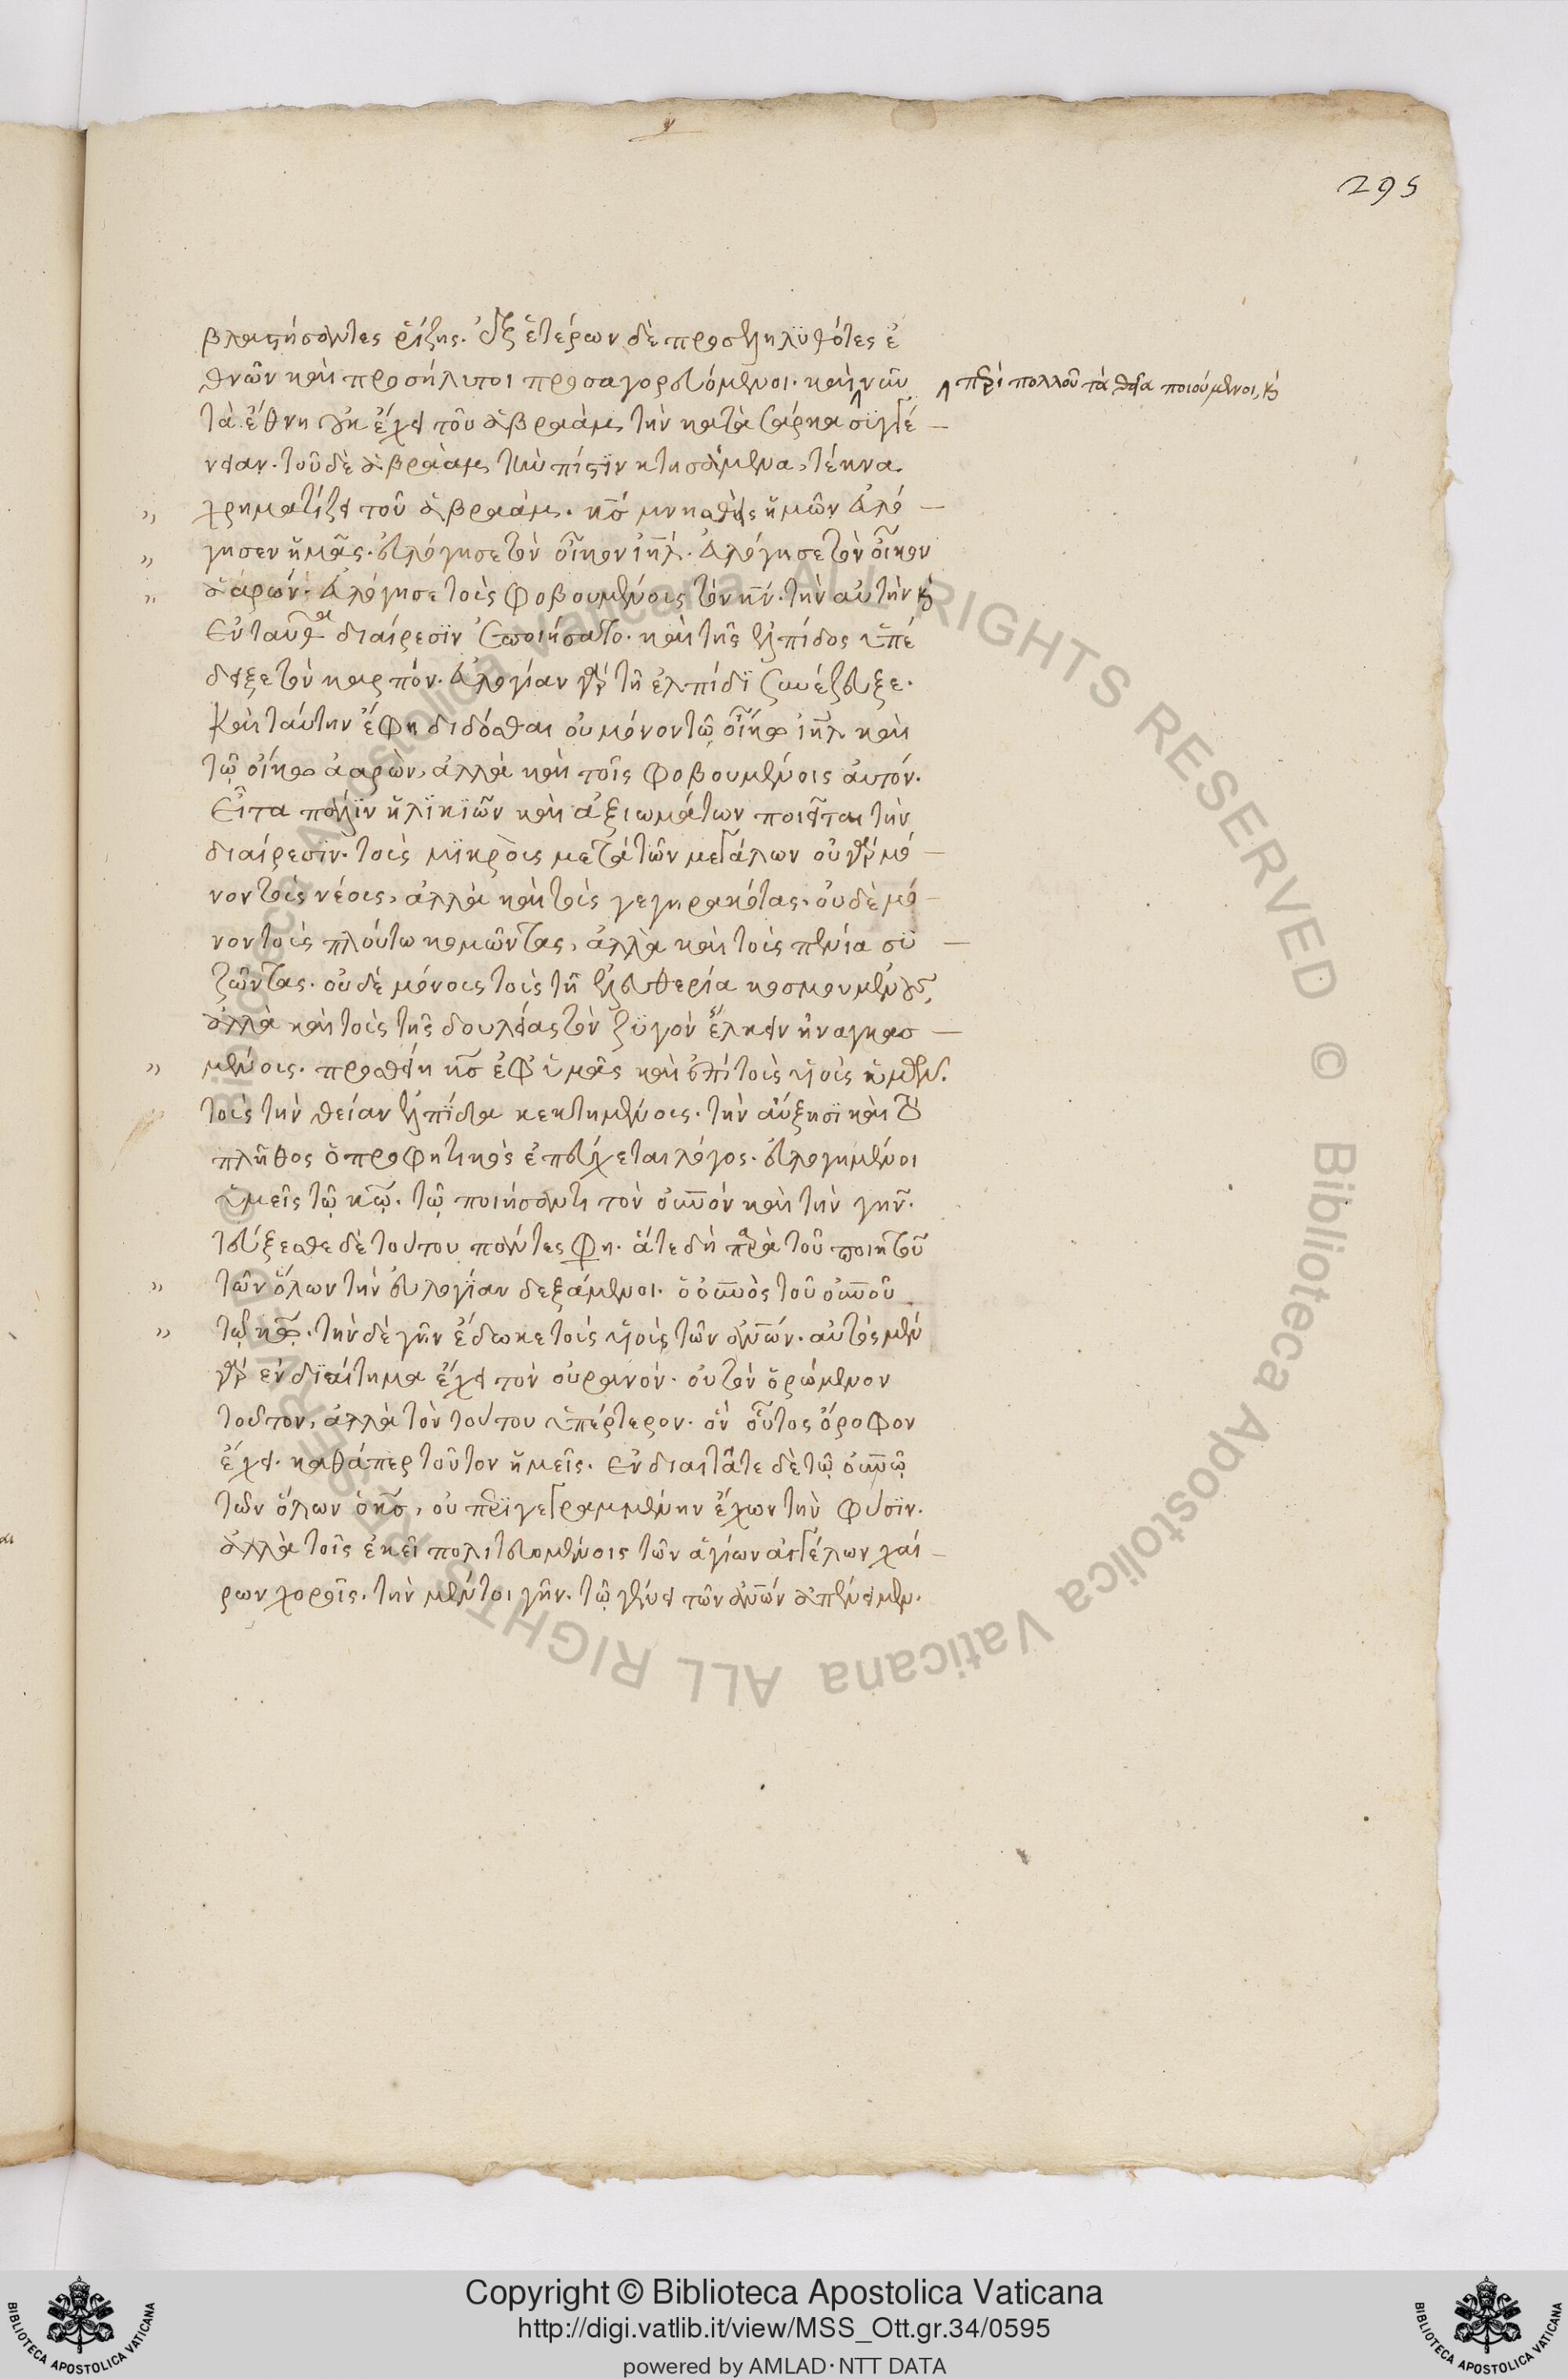 295
βλαστήσαντες ῥίζης. ἐξ ἑτέρων δὲ προσεληλυθότες ἐ
θνῶν καὶ προσήλυτοι προσαγορευόμενοι. καὶ νῦν
περὶ πολλοῦ τὰ θεῖα ποιούμενοι, κ(αὶ)
τὰ ἔθνη οὐκ ἔχει τοῦ ἀβραὰμ τὴν κατὰ σάρκα συγγέ
νειαν. τοῦ δὲ ἀβραὰμ τὴν πίστιν κτησάμενα, τέκνα
χρηματίζει τοῦ ἀβραάμ. κς μνησθεὶς ἡμῶν εὐλό
γησεν ἡμᾶς. εὐλόγησε τὸν οἶκον ιηλ. εὐλόγησε τὸν οἶκον
ἀαρών. εὐλόγησε τοὺς φοβουμένους τὸν κν. τὴν αὐτὴν κ(αὶ)
ἐνταῦθα διαίρεσιν ἐποιήσατο. καὶ τῆς ἐλπίδος ὑπέ
δειξε τὸν καρπόν. εὐλογίαν γὰρ τῇ ἐλπίδι συνέζευξε.
Καὶ ταύτην ἔφη δίδοσθαι οὐ μόνον τῷ οἴκῳ ιηλ καὶ
τῷ οἴκῳ ἀαρὼν, ἀλλὰ καὶ τοῖς φοβουμένοις αὐτόν.
Εἶτα πάλιν ἡλικιῶν καὶ ἀξιωμάτων ποιεῖται τὴν
διαίρεσιν. τοὺς μικροὺς μετὰ τῶν μεγάλων οὐ γὰρ μό
νον τοὺς νέους, ἀλλὰ καὶ τοὺς γεγηρακότας. οὐδὲ μό
νον τοὺς πλούτω κομῶντας, ἀλλὰ καὶ τοὺς πενία συ
ζῶντας. οὐδὲ μόνους τοὺς τῇ ἐλευθερία κοσμουμένους
ἀλλὰ καὶ τοὺς τῆς δουλείας τὸν ζυγὸν ἕλκειν ἠναγκασ
μένους. προσθείη κς ἐφ ὑμᾶς καὶ ἐπὶ τοὺς υἱοὺς ὑμῶν.
τοῖς τὴν θείαν ἐλπίδα κεκτημένοις. τὴν αὔξησι καὶ τὸ
πλῆθος ὁ προφητικὸς ἐπεύχεται λόγος. εὐλογημένοι
ὑμεῖς τῷ κω. τῷ ποιήσαντι τὸν οὐνον καὶ τὴν γῆν.
τεύξεσθε δὲ τούτου πάντες φη. ἅτε δὴ παρὰ τοῦ ποιητοῦ
τῶν ὅλων τὴν εὐλογίαν δεξάμενοι. ὁ οὐνος τοῦ οὐνου
τῷ κω. τὴν δὲ γῆν ἔδωκε τοῖς υἱοῖς τῶν ανων. αὐτὸς μὲν
γὰρ ἐνδιαίτημα ἔχει τὸν οὐρανόν. οὐ τὸν ὁρώμενον
τοῦτον, ἀλλὰ τὸν τούτου ὑπέρτερον. ὃν οὗτος ὄροφον
ἔχει. καθάπερ τοῦτον ἡμεῖς. ἐνδιαιτᾶτε δὲ τῷ οὐνω
τῶν ὅλων ὁ κς, οὐ περιγεγραμμένην ἔχων τὴν φύσιν.
ἀλλὰ τοῖς ἐκεῖ πολιτευομένοις τῶν ἁγίων ἀγγέλων χαί
ρων χοροῖς. τὴν μέντοι γῆν. τῷ γένει τῶν ανων ἀπένειμεν.
Copyright © Biblioteca Apostolica Vaticana
http://digi.vatlib.it/view/MSS_Ott.gr.34/0595
powered by AMLAD·NTT DATA